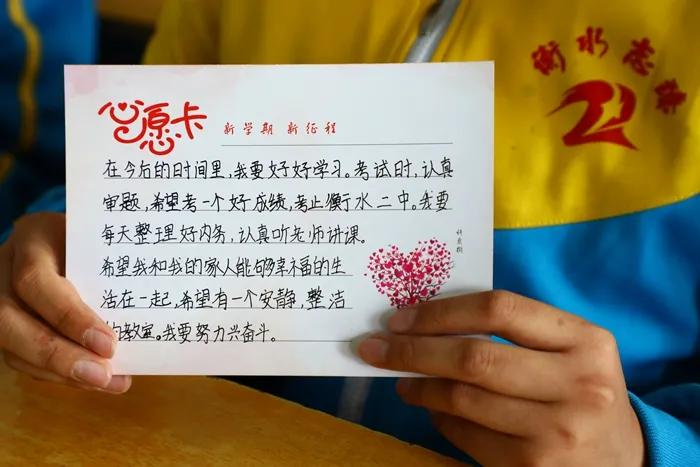 衡水志臻
心愿卡 新学期 新征程
在今后的时间里,我要好好学习。考试时,认真
审题,希望考一个好成绩,考止衡水二中。我要
每天整理好内务,认真听老师讲课。
希望我和我的家人能够幸福的生
活在一起,希望有一个安静,整洁
的教室。我要努力兴奋斗。